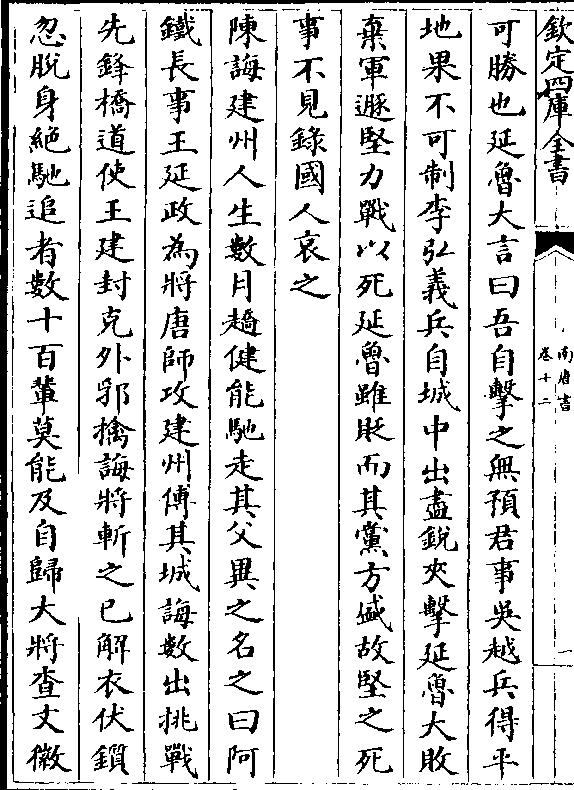 欽定四庫全書
南唐書
卷十二
一
可勝也延魯大言曰吾自擊之無預君事吳越兵得平
地果不可制李弘義兵自城中出盡銳夾擊延魯大敗
棄軍遯堅力戰以死延魯雖貶而其黨方盛故堅之死
事不見錄國人哀之
陳誨建州人生數月趫健能馳走其父異之名之曰阿
鐵長事王延政為將唐師攻建州傅其城誨數出挑戰
先鋒橋道使王建封克外郛擒誨將斬之已解衣伏鑕
忽脫身絕馳追者數十百輩莫能及自歸大將查文徽